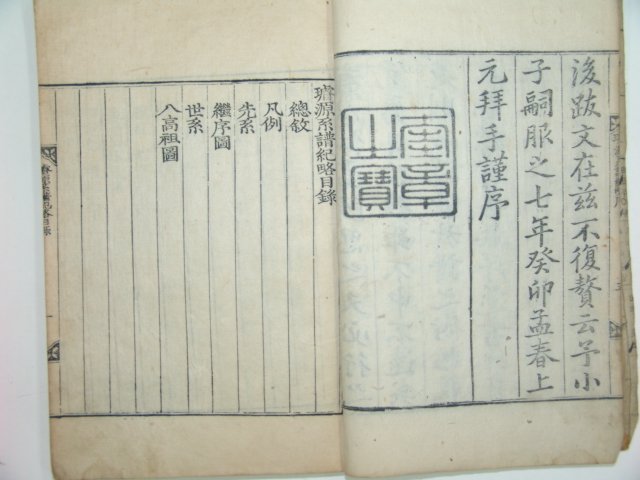 後跋文在玆不復贅云予小
子嗣服之七年癸卯孟春上
元拜手謹序
奎章之寶
璿源系譜紀略目錄
總敘
凡例
先系
繼序圖
世系
八高祖圖